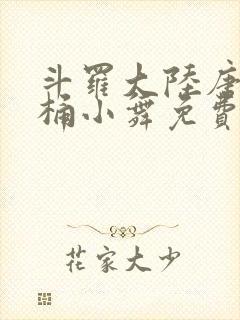 斗羅大陸唐
桶小舞免費
花家大少